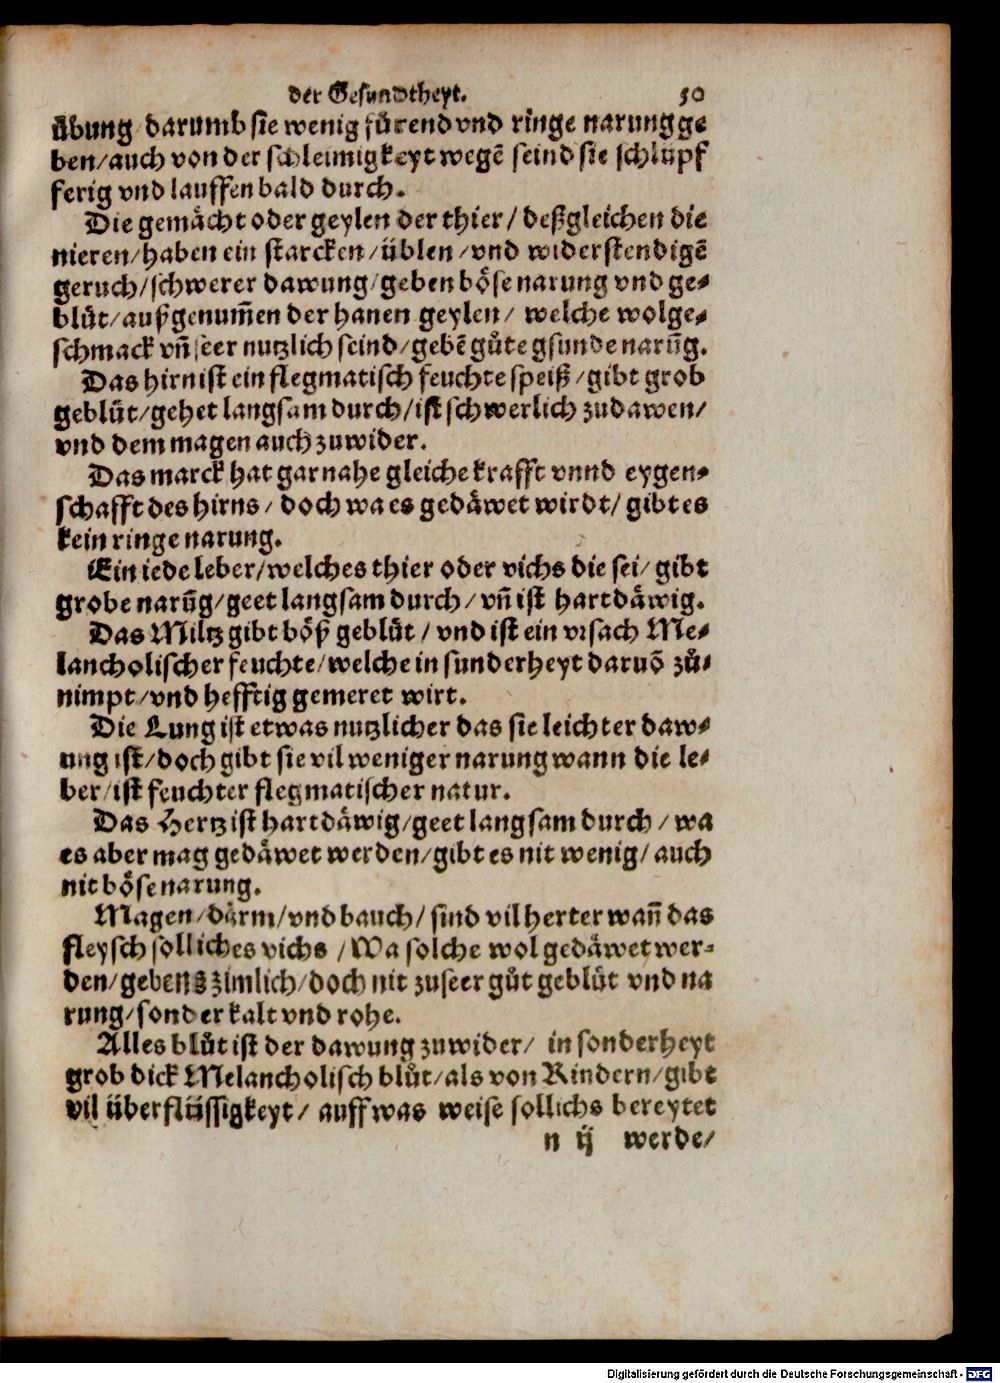 der Gesundtheyt. 50
übung/darumb sie wenig fürend vnd ringe narung ge
ben/auch von der schleimigkeyt wegē seind sie schlüpf
ferig vnd lauffen bald durch.
Die gemächt oder geylen der thier/deßgleichen die
nieren/haben ein starcken/üblen/vnd widerstendigē
geruch/schwerer dawung/geben böse narung vnd ge⸗
blüt/außgenum̄en der hanen geylen/ welche wolge⸗
schmack vn̄ seer nutzlich seind/gebē gůte gsunde narūg.
Das hirn ist ein flegmatisch feuchte speiß/gibt grob
geblüt/gehet langsam durch/ist schwerlich zudawen/
vnd dem magen auch zuwider.
Das marck hat gar nahe gleiche krafft vnnd eygen⸗
schafft des hirns/ doch wa es gedäwet wirdt/ gibt es
kein ringe narung.
Ein iede leber/welches thier oder vichs die sei/ gibt
grobe narūg/geet langsam durch/vn̄ ist hartdäwig.
Das Miltz gibt böß geblüt/ vnd ist ein vrsach Me⸗
lancholischer feuchte/welche in sunderheyt daruō zů⸗
nimpt/vnd hefftig gemeret wirt.
Die Lung ist etwas nutzlicher das sie leichter daw⸗
ung ist/doch gibt sie vil weniger narung wann die le⸗
ber/ist feuchter flegmatischer natur.
Das Hertz ist hartdäwig/geet langsam durch/wa
es aber mag gedäwet werden/gibt es nit wenig/auch
nit böse narung.
Magen/därm/vnd bauch/sind vil herter wan̄ das
fleysch solliches vichs/Wa solche wol gedäwet wer⸗
den/gebens zimlich/doch nit zuseer gůt geblüt vnd na
rung/sonder kalt vnd rohe.
Alles blůt ist der dawung zuwider/ in sonderheyt
grob dick Melancholisch blůt/als von Rindern/gibt
vil überflüssigkeyt/ auff was weise sollichs bereytet
n ij werde/
Digitalisierung gefördert durch die Deutsche Forschungsgemeinschaft - DFG